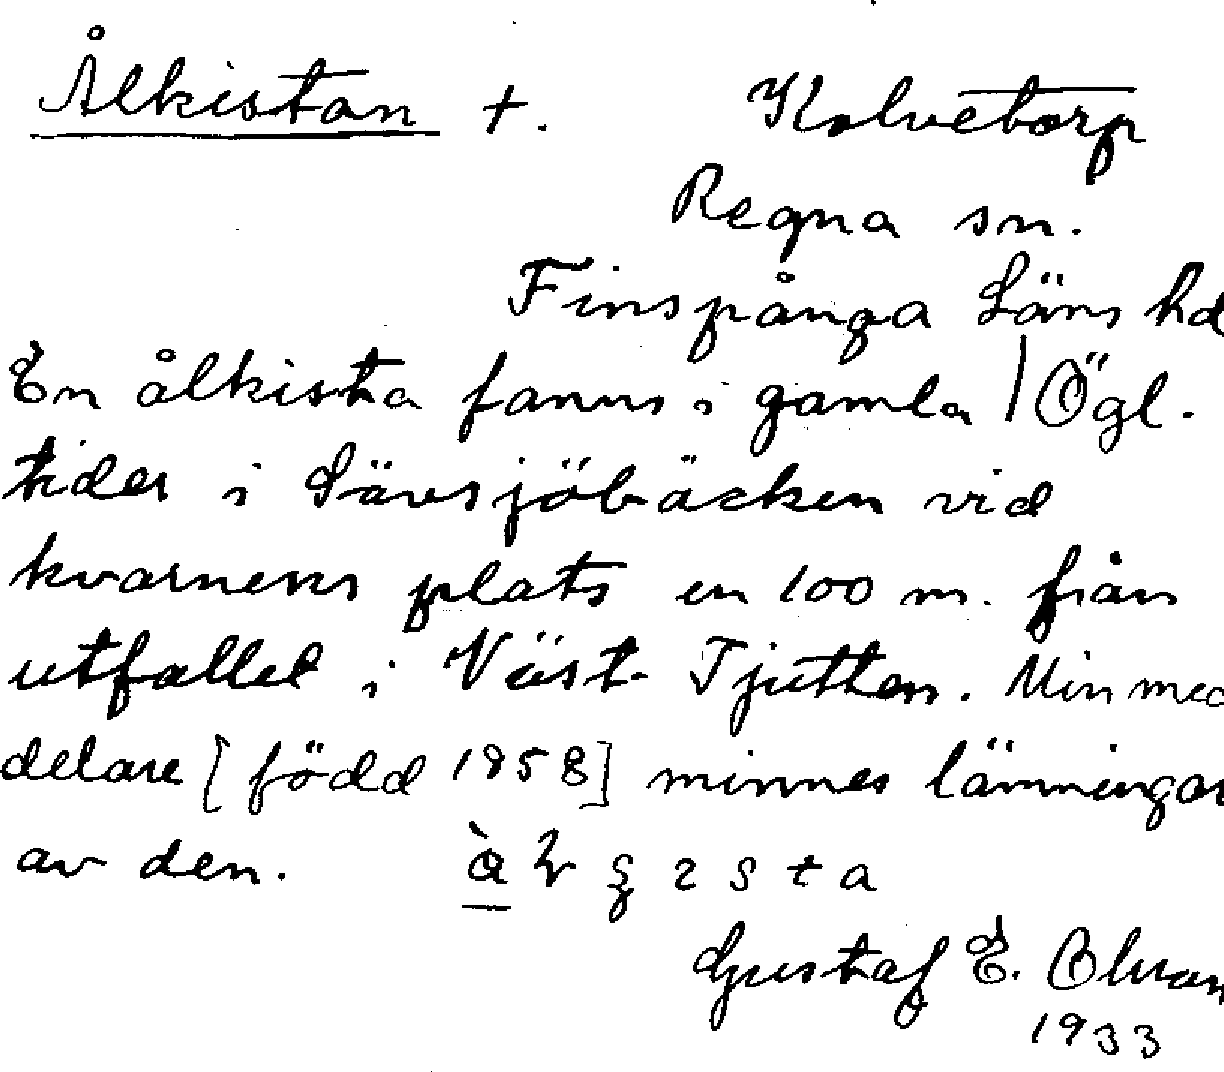 Ålkistan +. Kolvetorp
Regna sn.
Finspånga Läns hd
En ålkista fanns i gamla | Ögl.
tider i Sävsjöbäcken vid
kvarnens plats en 100 m. från
utfallet i Väst. Tjutten. Min med
delare [född 1858] minnes lämningar
av den.
Gustaf E. Ohman
1933